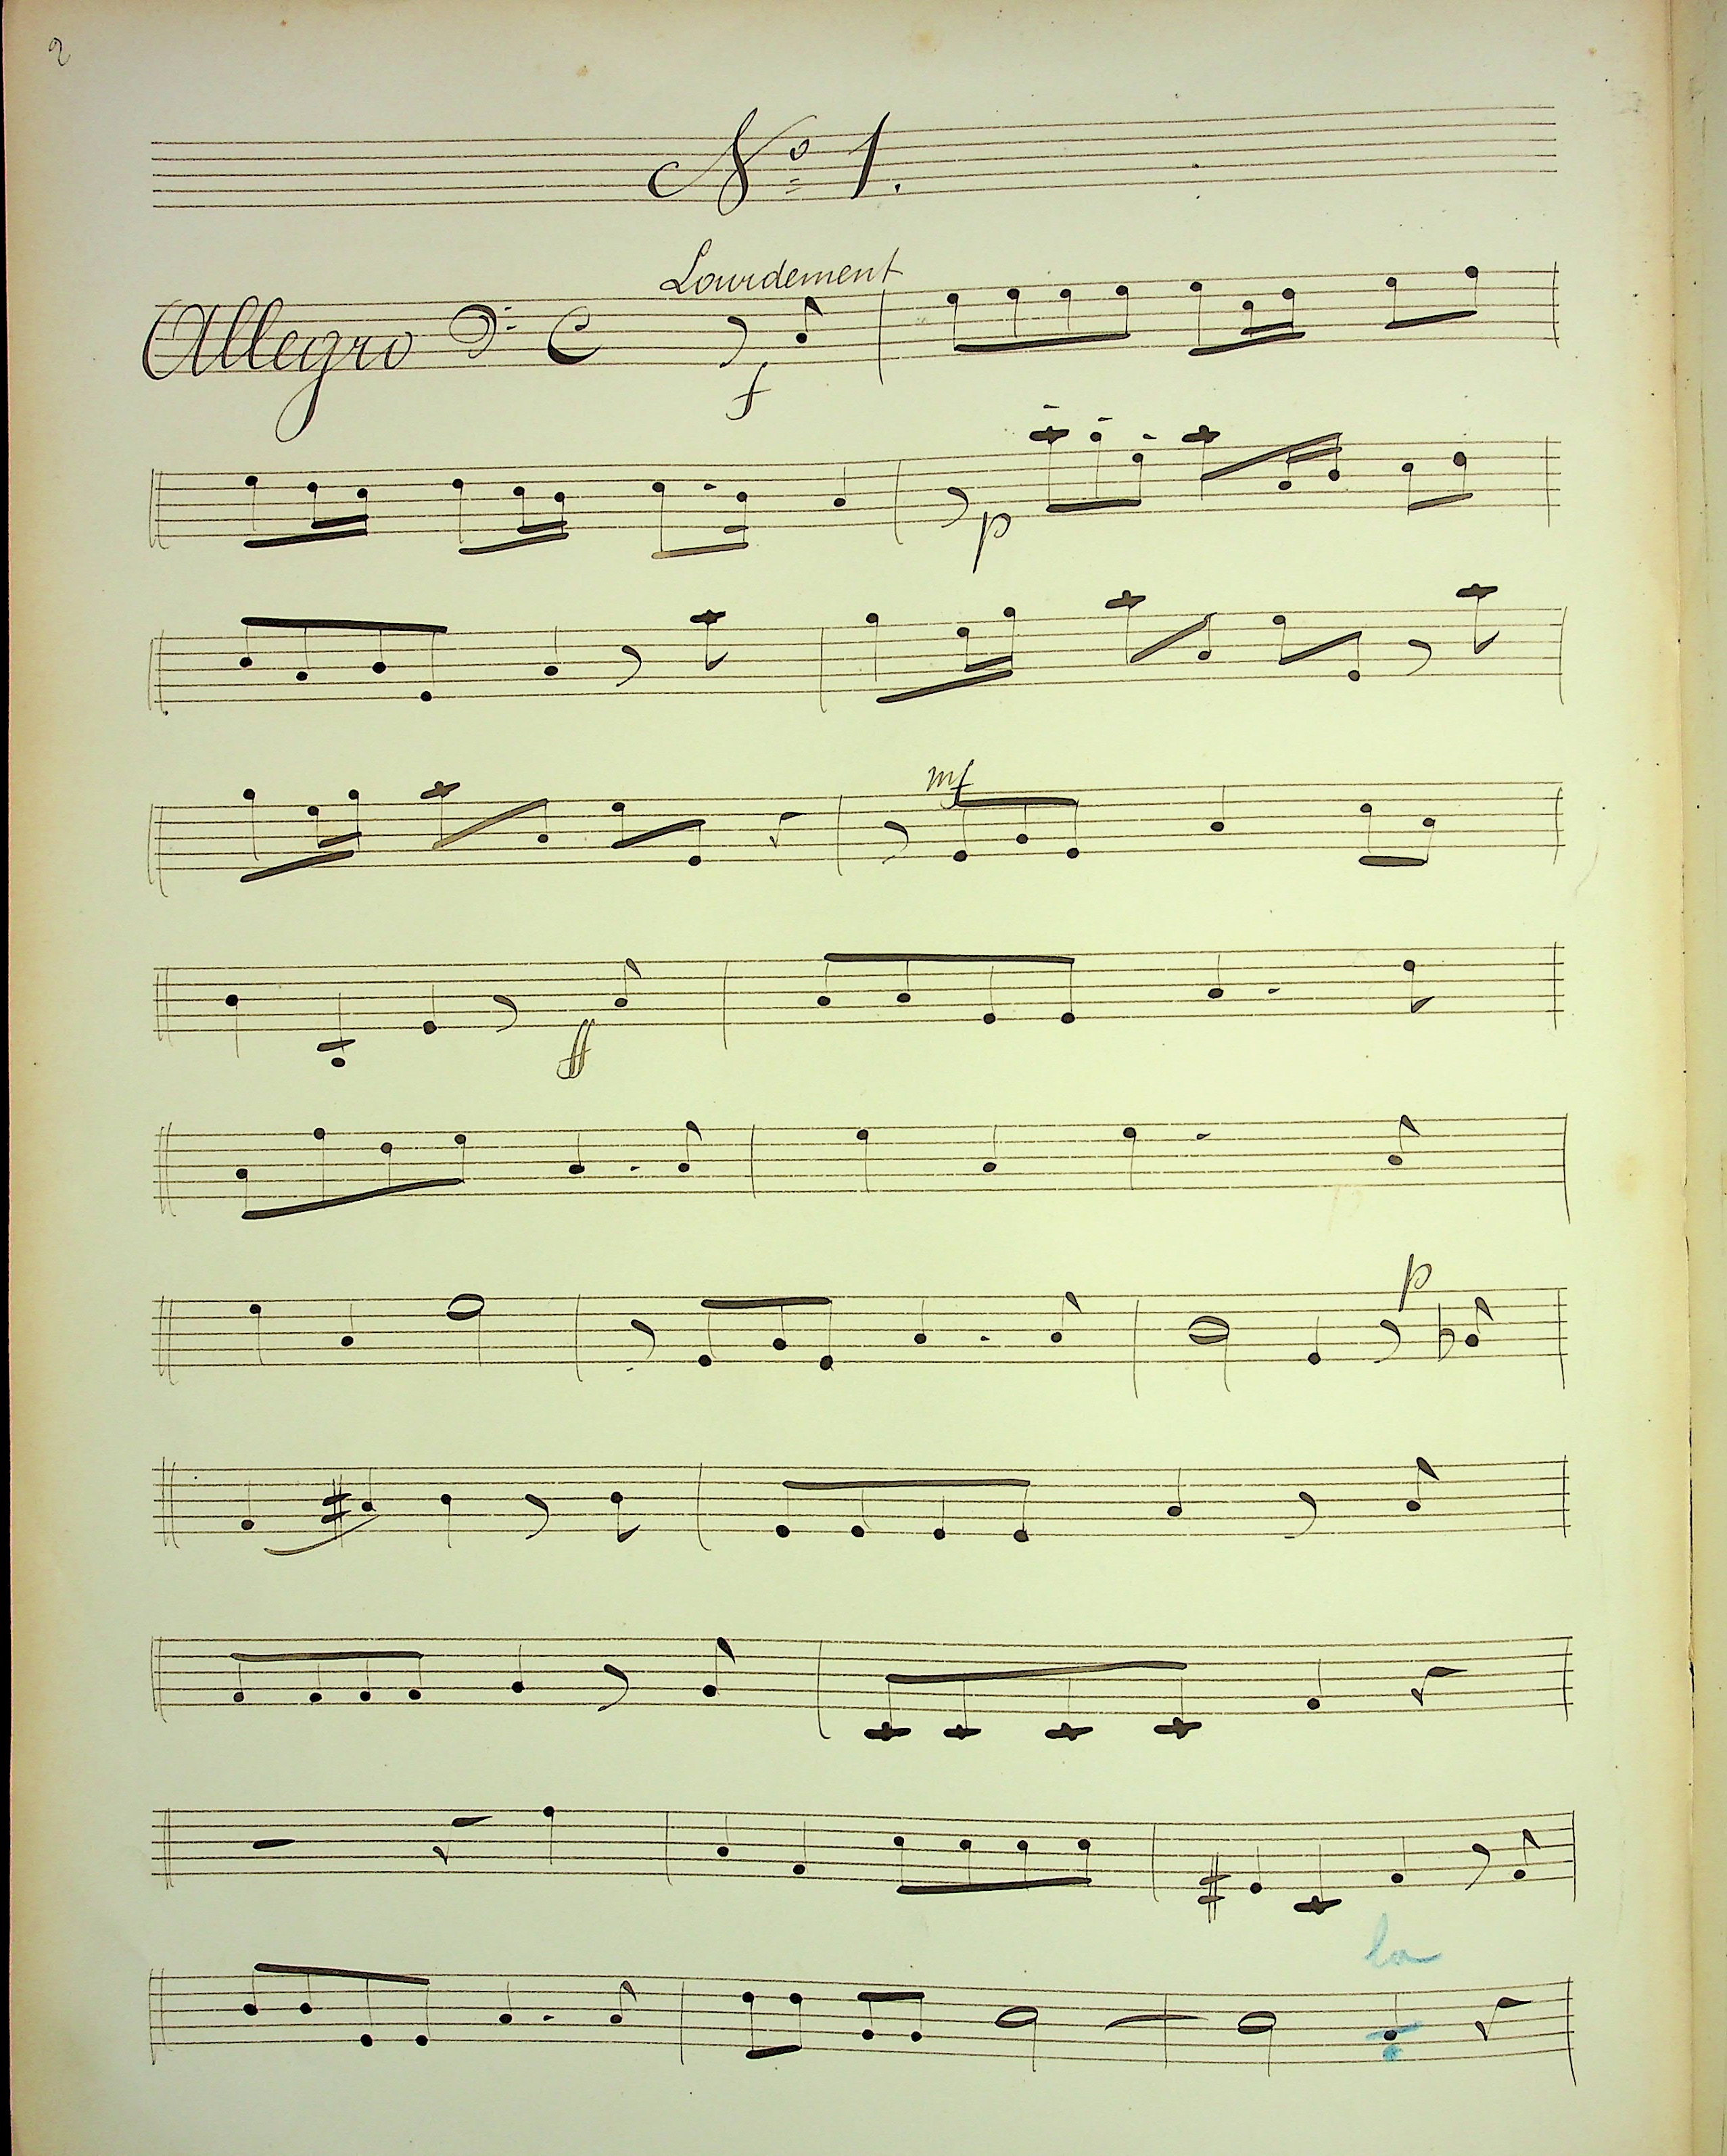 2
Nº 1.
Lourdement
Allegro
f
p
mf
ff
p
la